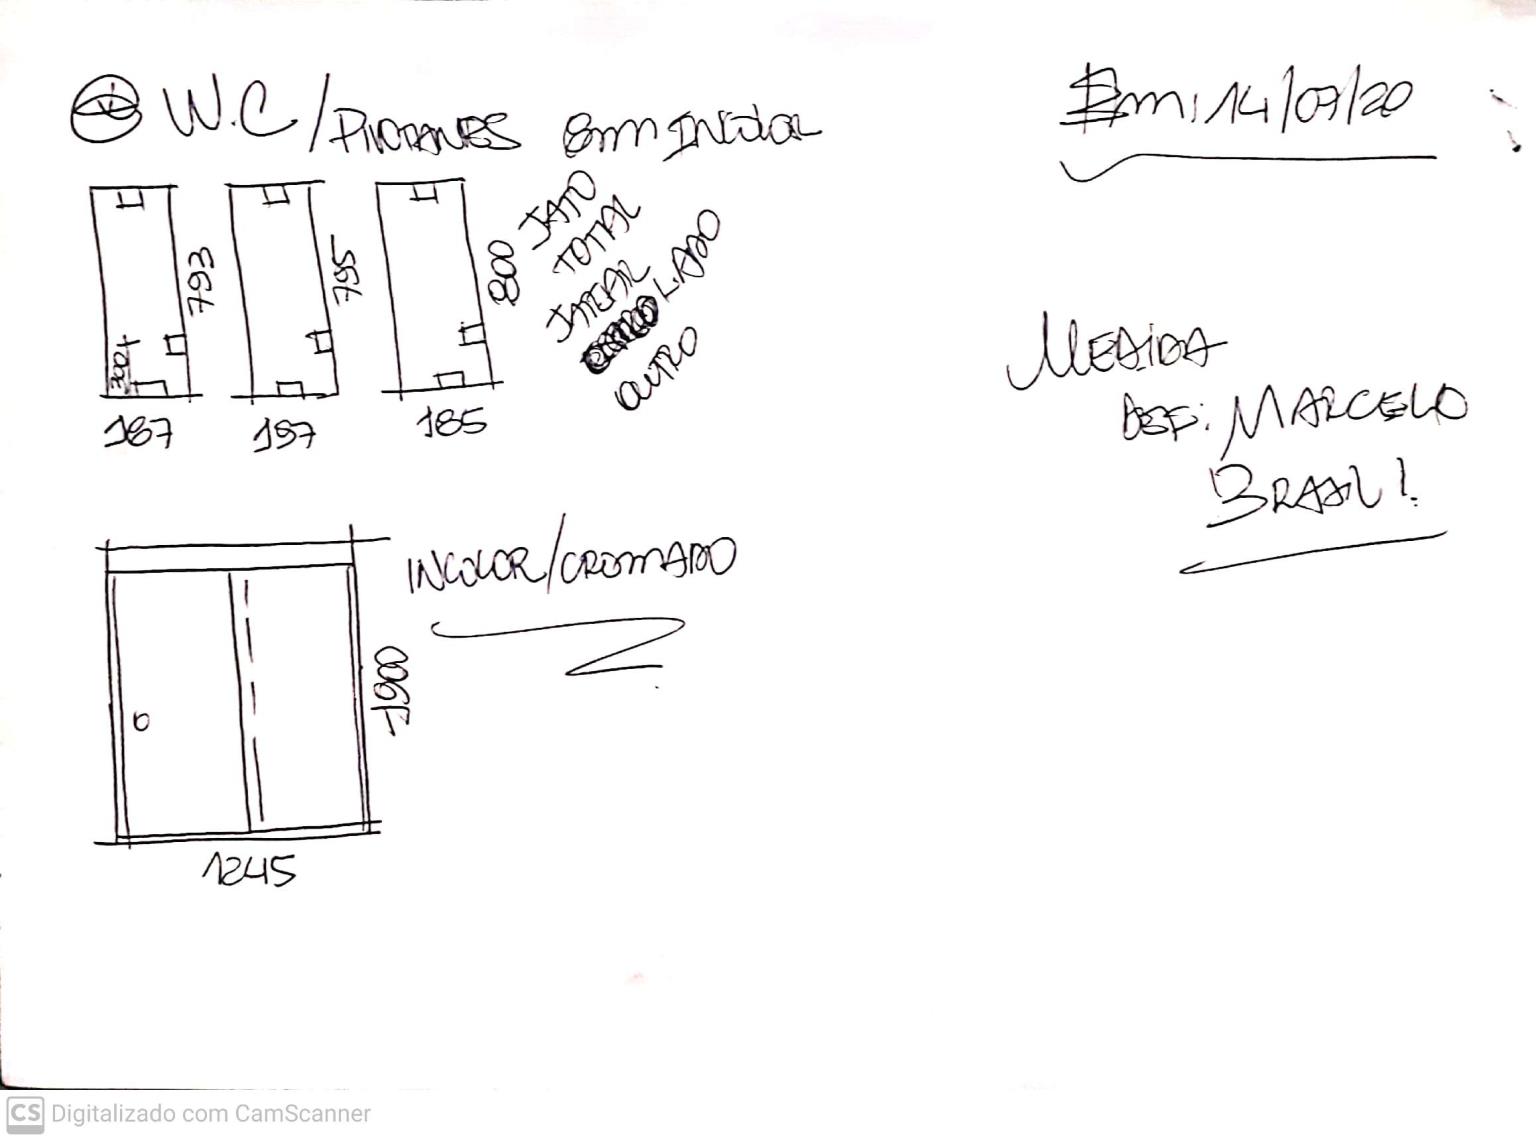 W.C/PIVOTANTES 8mm INCOLOR
Em: 14/07/20
793
795
800
JATO
TOTAL
JATEAR
LADO
OUTRO
300
187
197
185
MEDIDA
DEF: MARCELO
BRASIL!
INCOLOR/CROMADO
1900
1245
CS Digitalizado com CamScanner